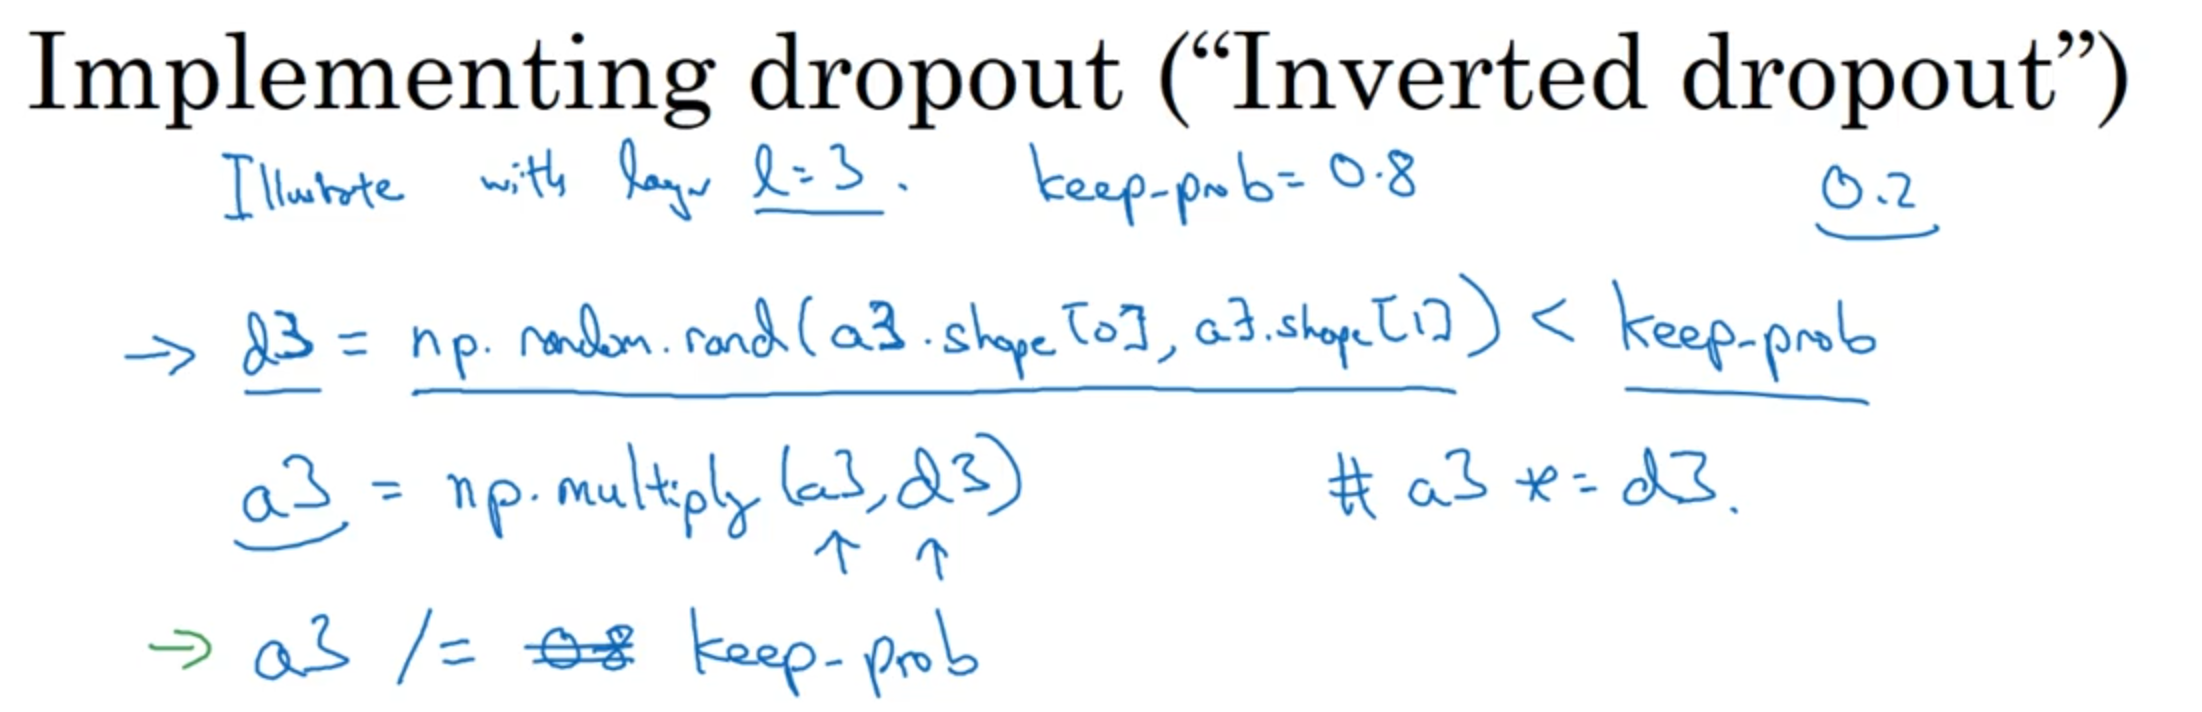 Implementing dropout (“Inverted dropout”)
Illustrate with layer l=3. keep-prob=0.8 0.2
→ d3 = np.random.rand(a3.shape[0], a3.shape[1]) < keep-prob
a3 = np.multiply(a3, d3) # a3 *= d3.
↑ ↑
→ a3 /= 0.8 keep-prob